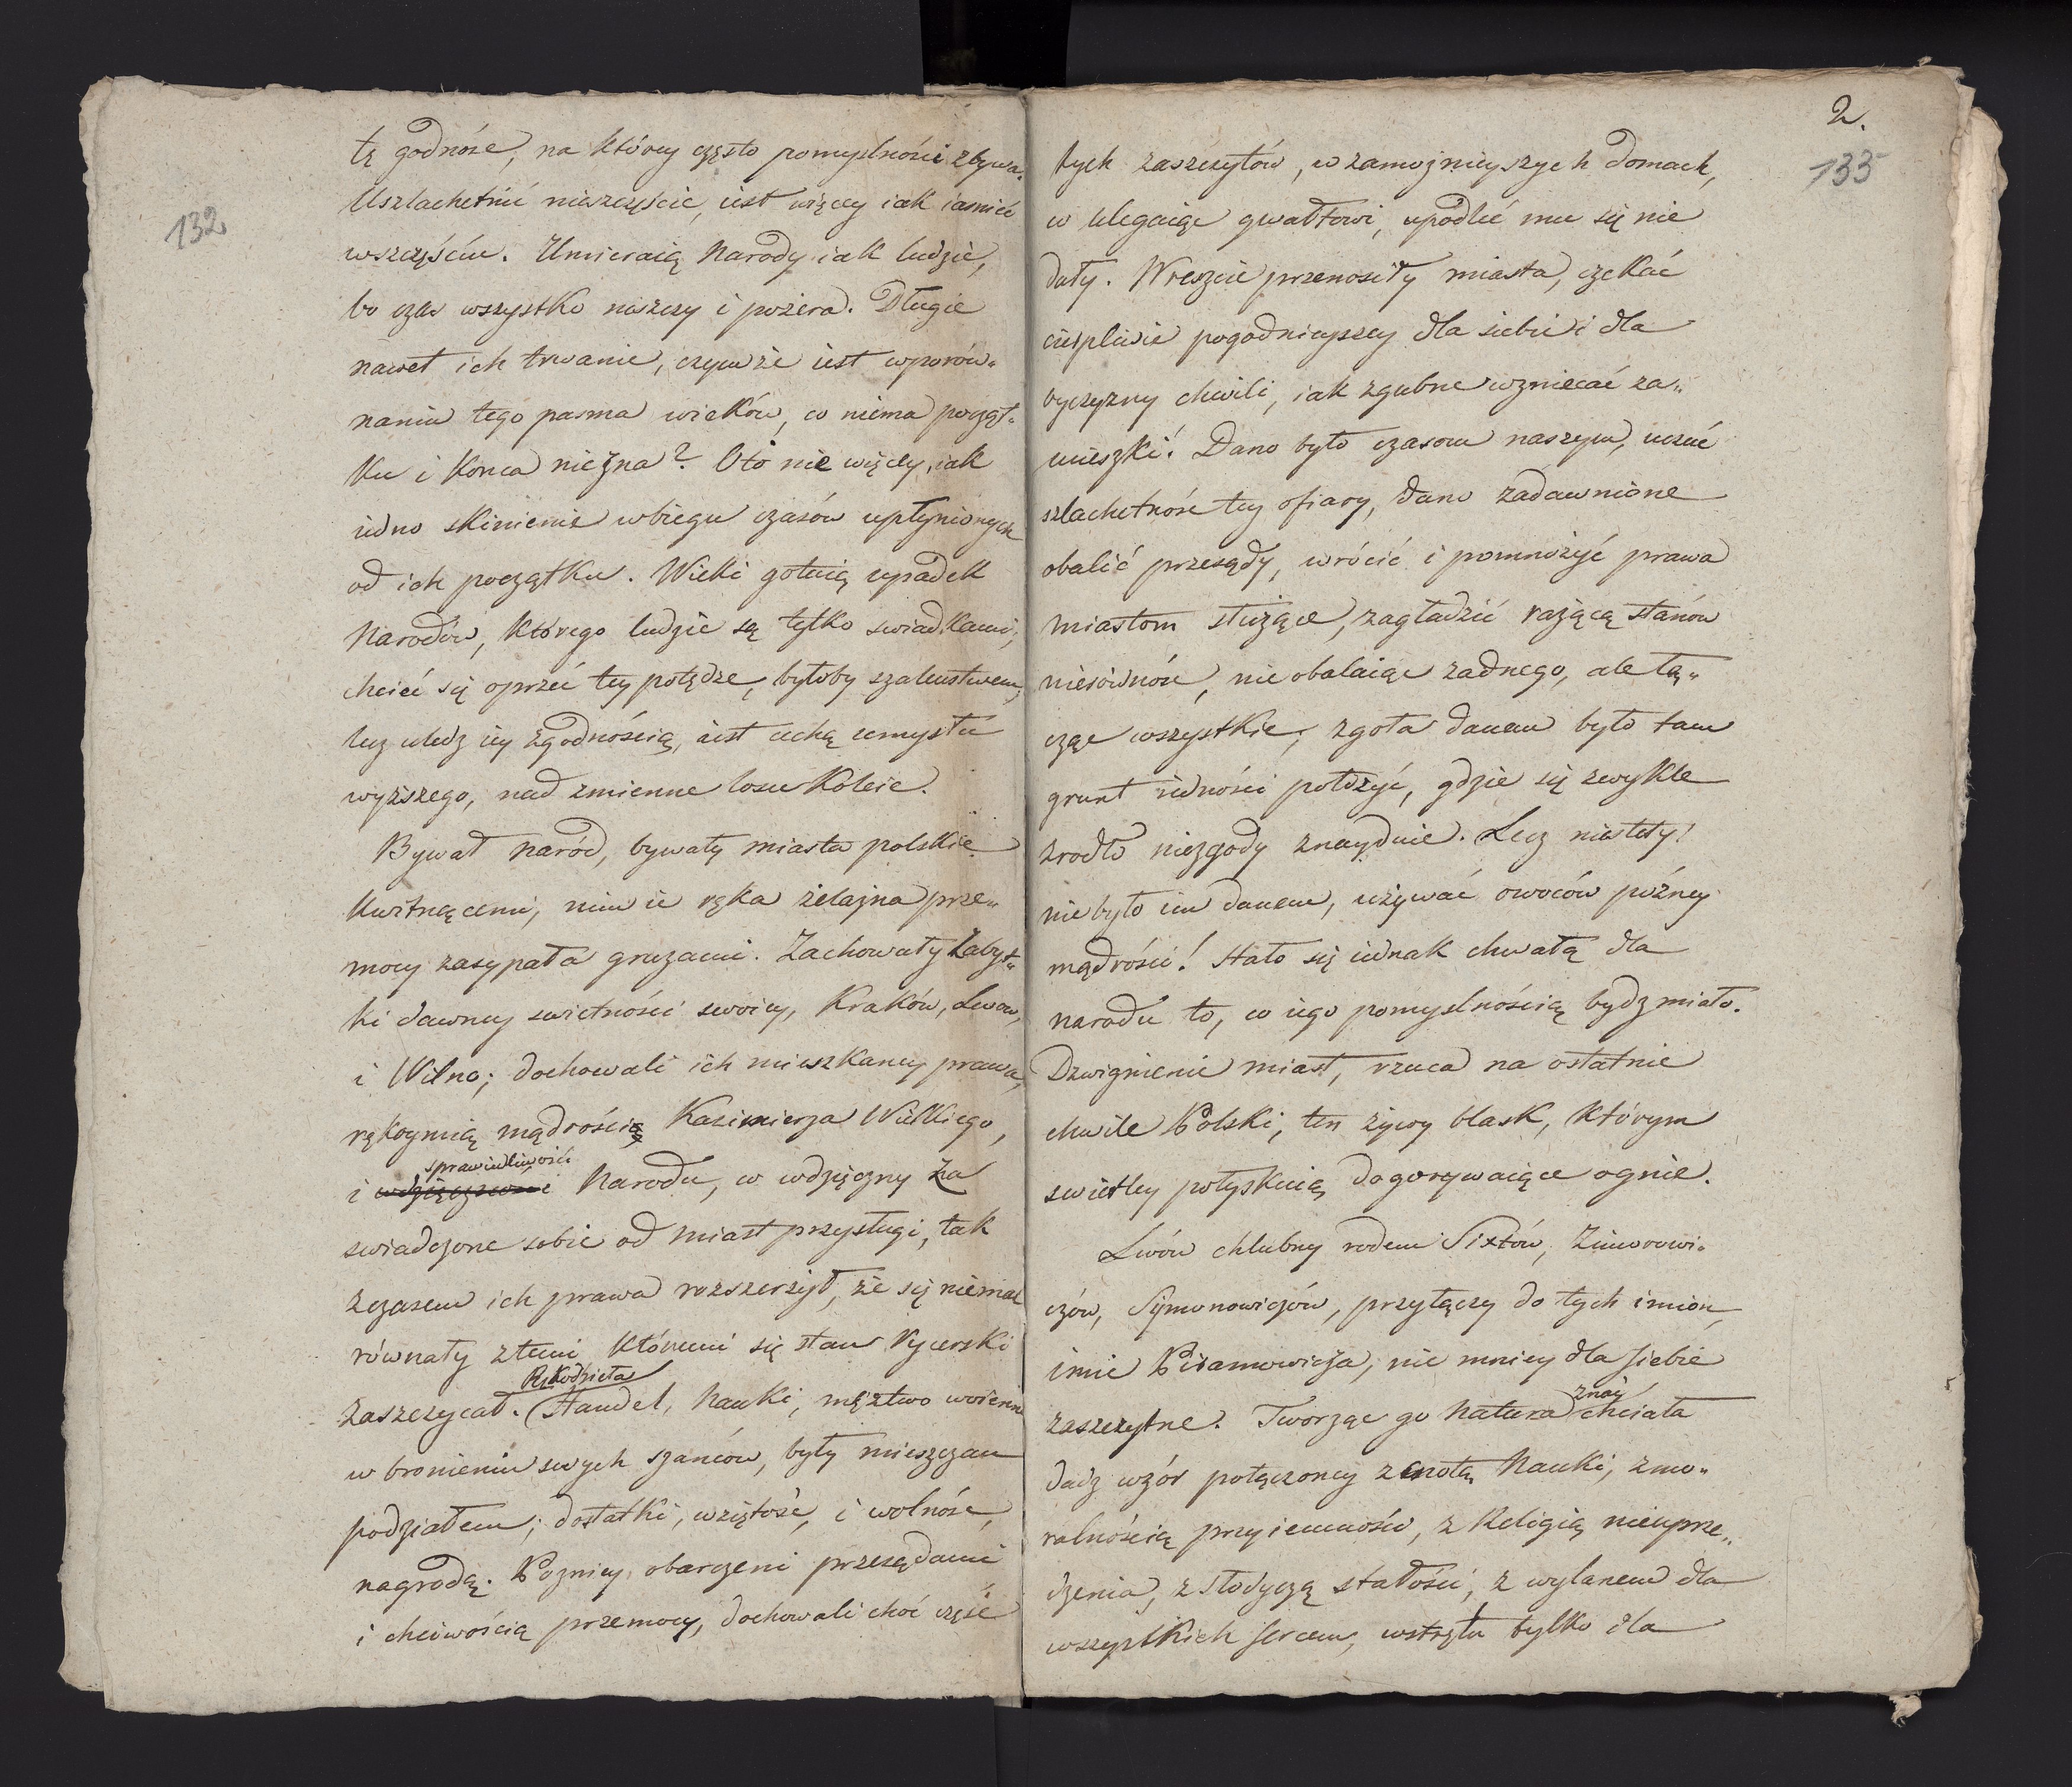 132
tę godność, na którey często pomyslności zbywa.
Uszlachetnić nieszczęście, iest więcey iak iasnieć
wszczęściu. Umieraią Narody iak ludzie,
bo czas wszystko niszczy i pożera. Długie
nawet ich trwanie, czymże iest wporów„
naniu tego pasma wieków, co niema począt„
ku i końca niezna? Oto nie więcey, iak
iedno skinienie wbiegu czasów upłynionych
od ich początku. Wieki gotuią upadek
Narodów, którego ludzie są tylko swiadkami;
chcieć się oprzeć tey potędze, byłoby szaleństwem,
lecz uledz iey zgodnością, iest cechą umysłu
wyższego, nad zmienne losu koleie.
Bywał naród, bywały miasta polskie
kwitnącemi, nim ie ręka żelazna prze„
mocy zasypała gruzami. Zachowały zabyt„
ki dawney swietności swoiey, Kraków, Lwów,
i Wilno; dochowali ich mieszkancy prawa,
rękoymią mądrości Kazimierza Wielkiego,
sprawiedliwości
i Narodu, co wdzięczny za
swiadczone sobie od miast przysługi, tak
zczasem ich prawa rozszerzył, że się niemal
równały ztemi któremi się stan Rycerski
Rękodzieła
zaszczycał. Handel, Nauki, męztwo woienne
w bronieniu swych szańców, były mieszczan
podziałem; dostatki, wziętość, i wolność,
nagrodą. Pozniey, obarczeni przesądami
i chciwością przemocy, dochowali choć część
2.
133
tych zaszczytów, w zamożnieyszych domach,
w ulegaiąc gwałtowi, upodlić mu się nie
dały. Wreszcie przenosiły miasta, czekać
cierpliwie pogodnieyszey dla siebie i dla
oyczyzny chwili, iak zgubne wzniecać za„
mieszki! Dano było czasom naszym, uczuć
szlachetność tey ofiary, dano zadawnione
obalić przesądy, wrócić i pomnożyć prawa
miastom służące, zagładzić rażącą stanów
nierówność, nie obalaiąc żadnego, ale łą„
cząc wszystkie; zgoła danem było tam
grunt iedności położyć, gdzie się zwykle
zrodło niezgody znayduie. Lecz niestety!
nie było im danem, używać owoców późney
mądrości! Stało się iednak chwałą dla
narodu to, co iego pomyslnością bydz miało.
Dzwignienie miast, rzuca na ostatnie
chwile Polski, ten żywy blask, którym
swietley połyskuią dogorywaiące ognie.
Lwów chlubny rodem Sixtów, Zimorowi„
czów, Symonowiczów, przyłączy do tych imion,
imie Piramowicza, nie mniey dla siebie
znać
zaszczytne. Tworząc go Natura chciała
dadz wzór połączoney z cnotą Nauki, z mo„
ralnością przyiemności, z Religią nieuprze„
dzenia, z słodyczą stałości, z wylanem dla
wszystkich sercem, wstrętu tylko dla